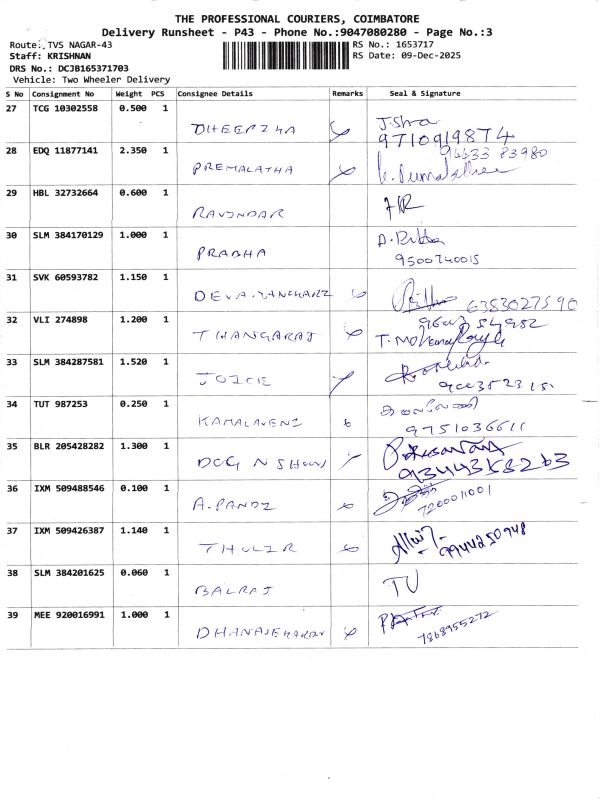 THE PROFESSIONAL COURIERS, COIMBATORE
Delivery Runsheet - P43 - Phone No.:9047080280 - Page No.:3
Route: TVS NAGAR-43 RS No.: 1653717
Staff: KRISHNAN RS Date: 09-Dec-2025
DRS No.: DCJB165371703
Vehicle: Two Wheeler Delivery
S No Consignment No Weight PCS Consignee Details Remarks Seal & Signature
27 TCG 10302558 0.500 1
DHEEPIKA
9710919874
28 EDQ 11877141 2.350 1 94433 83980
PREMALATHA
29 HBL 32732664 0.600 1
RAVINDAR
30 SLM 384170129 1.000 1
PRABHA
9500740015
31 SVK 60593782 1.150 1
6383027590
32 VLI 274898 1.200 1
THANGARAJ
33 SLM 384287581 1.520 1
JOICE
34 TUT 987253 0.250 1
KAMALAVENI 9751036611
35 BLR 205428282 1.300 1
36 IXM 509488546 0.100 1
A.PANDI 7200011001
37 IXM 509426387 1.140 1
THULIR 9944250948
38 SLM 384201625 0.060 1
BALRAJ TV
39 MEE 920016991 1.000 1
DHANASEKARAN 7868955272